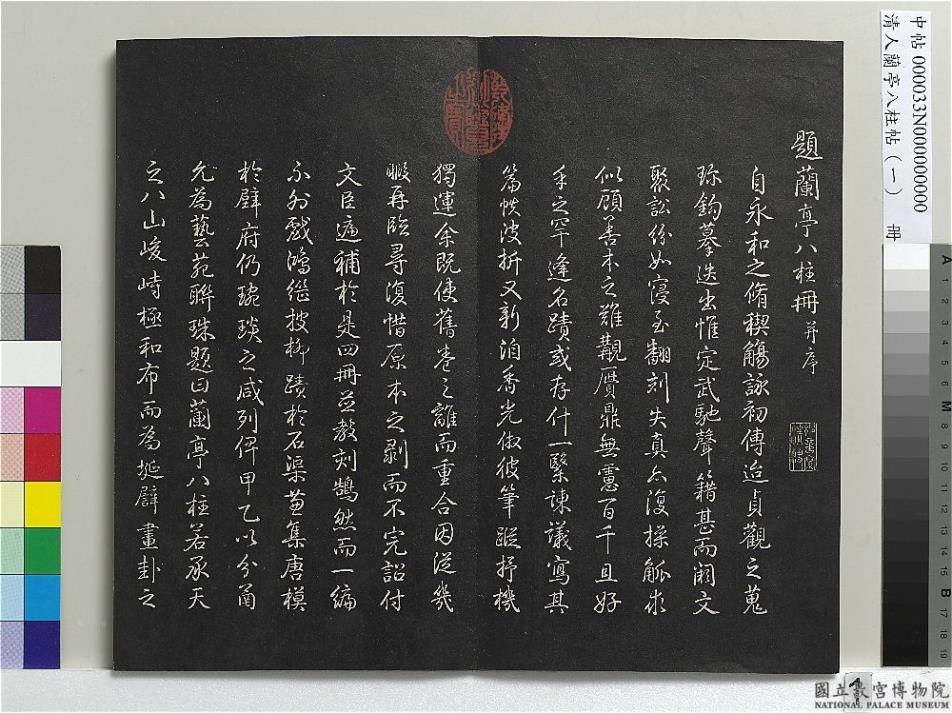 題蘭亭八柱冊 并序
自永和之脩稧觴詠初傳迨貞觀之蒐
珎鉤摹迭出惟定武馳聲籍甚而闕文
聚訟紛如寖至翻刻失真亦復操觚求
似顧善本之難觀贋鼎無慮百千且好
手之罕逢名蹟或存什一繄諫議寫其
篇帙波折又新洎香光倣彼筆蹤抒機
獨運余既使舊卷之離而重合因從幾
暇再臨尋復惜原本之剥而不完詔付
文臣遞補於是四冊並教刻鵠然而一編
不外戲鴻繼披柳蹟於石渠兼集唐模
於壁府仍琬琰之咸列俾甲乙以分函
允為藝苑聯珠題曰蘭亭八柱若承天
之八山峻峙極和布而為埏辟畫卦之
中帖 000033N000000000
清人蘭亭八柱帖（一） 冊
A 1 2 3 4 5 6 M 8 9 10 11 12 13 14 15 B 17 18 19
1
國立故宮博物院
NATIONAL PALACE MUSEUM